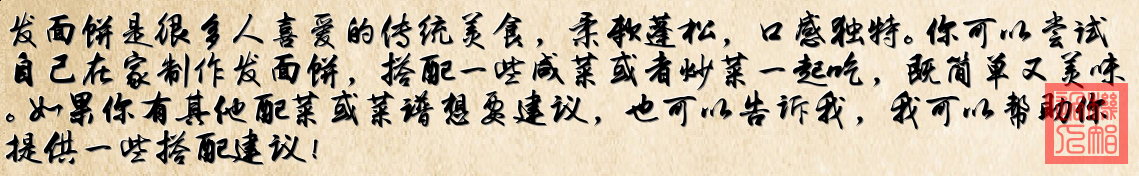 发面饼是很多人喜爱的传统美食，柔软蓬松，口感独特。你可以尝试
自己在家制作发面饼，搭配一些咸菜或者炒菜一起吃，既简单又美味
。如果你有其他配菜或菜谱想要建议，也可以告诉我，我可以帮助你
提供一些搭配建议！